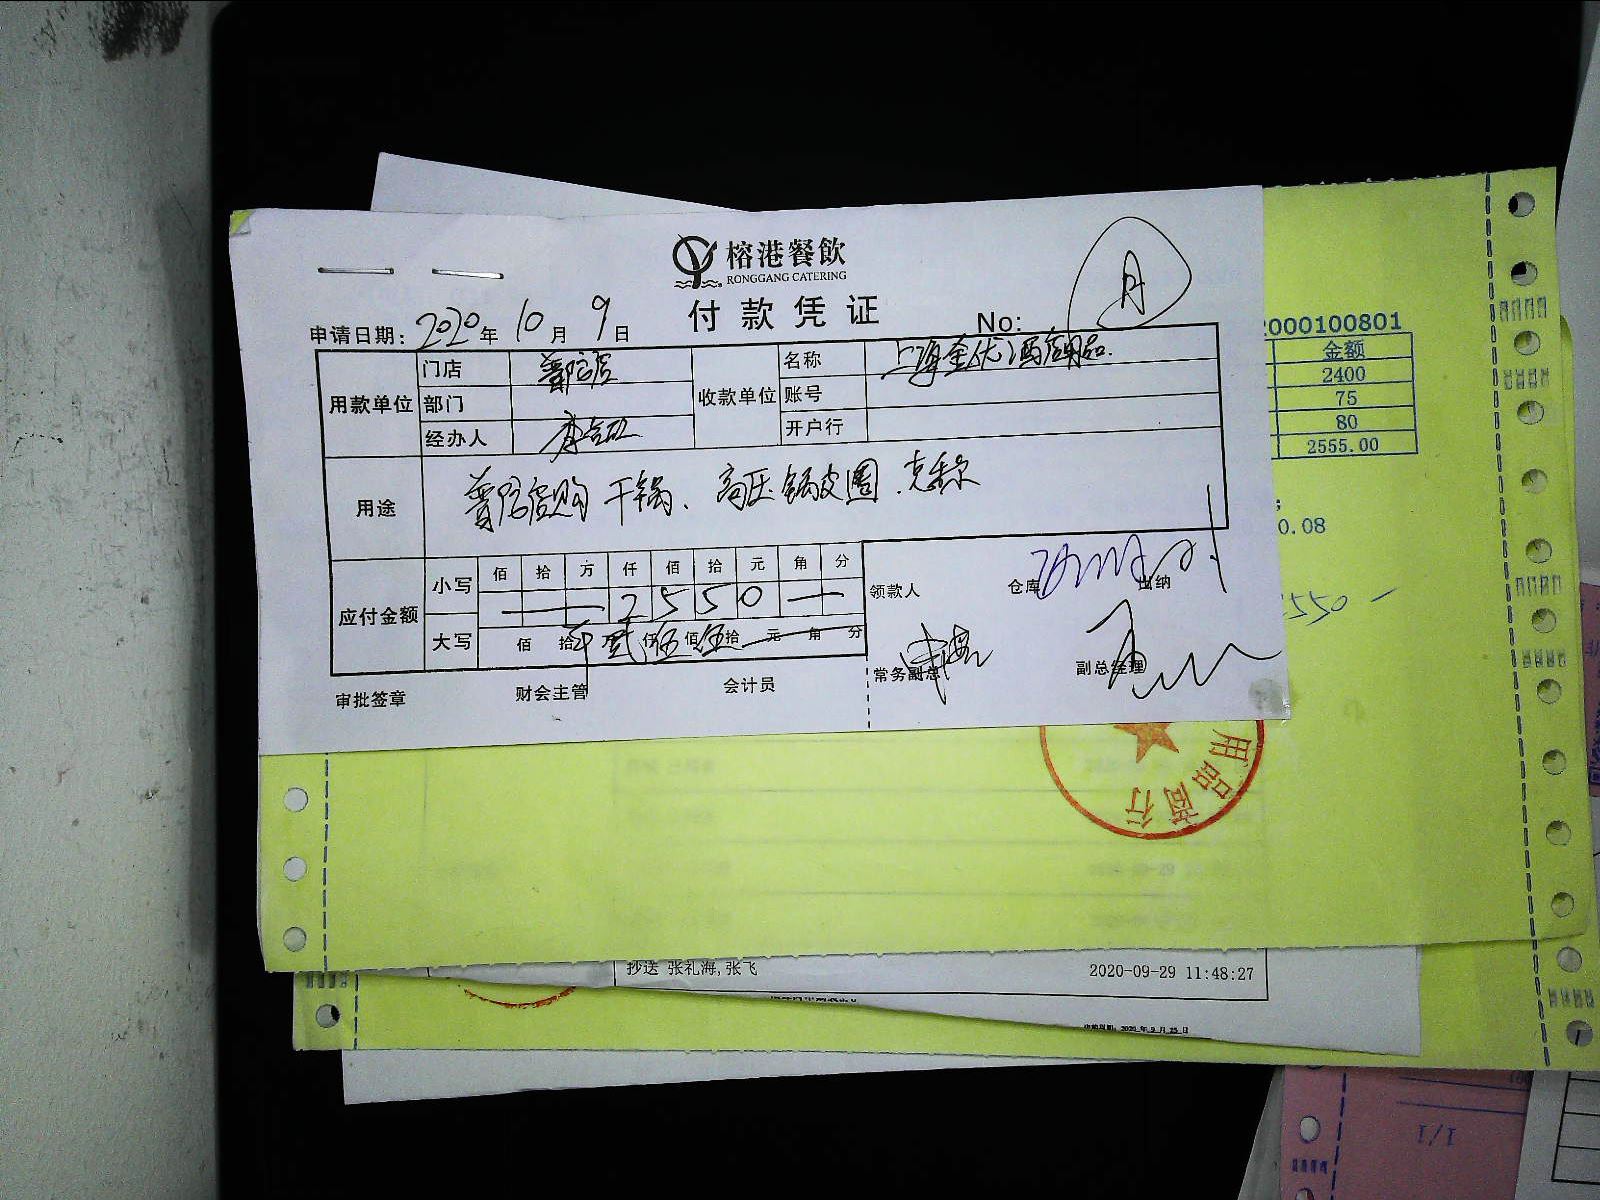 榕港餐飲
RONGGANG CATERING
付款凭证
申请日期: 2020 年 10 月 9 日
No:
月
用款单位 门店 普陀店
部门
经办人
收款单位 名称 上海金优酒店用品
账号
开户行
用途 普陀店购干锅、高压锅皮圈、克称
应付金额
小写 佰 拾 万 仟 佰 拾 元 角 分
2 5 5 0 —
大写 佰 拾 万 贰 仟 伍 佰 伍 拾 元 角 分
领款人 仓库 出纳
常务副总 副总经理
审批签章 财会主管 会计员
2000100801
金额
2400
75
80
2555.00
0.08
2550 -
用品商行
抄送 张礼海,张飞
2020-09-29 11:48:27
1/1